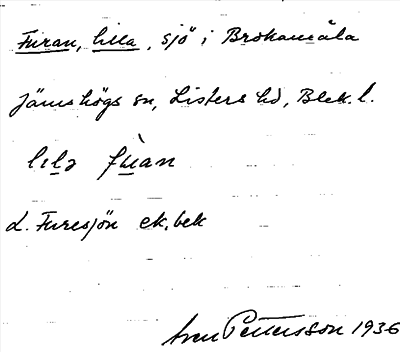 Furan, lilla, sjö i Brokamåla
Jämshögs sn, Listers hd, Blek. l.
lilạ fùan
d. Furesjön ek. bek
Sven Pettersson 1936